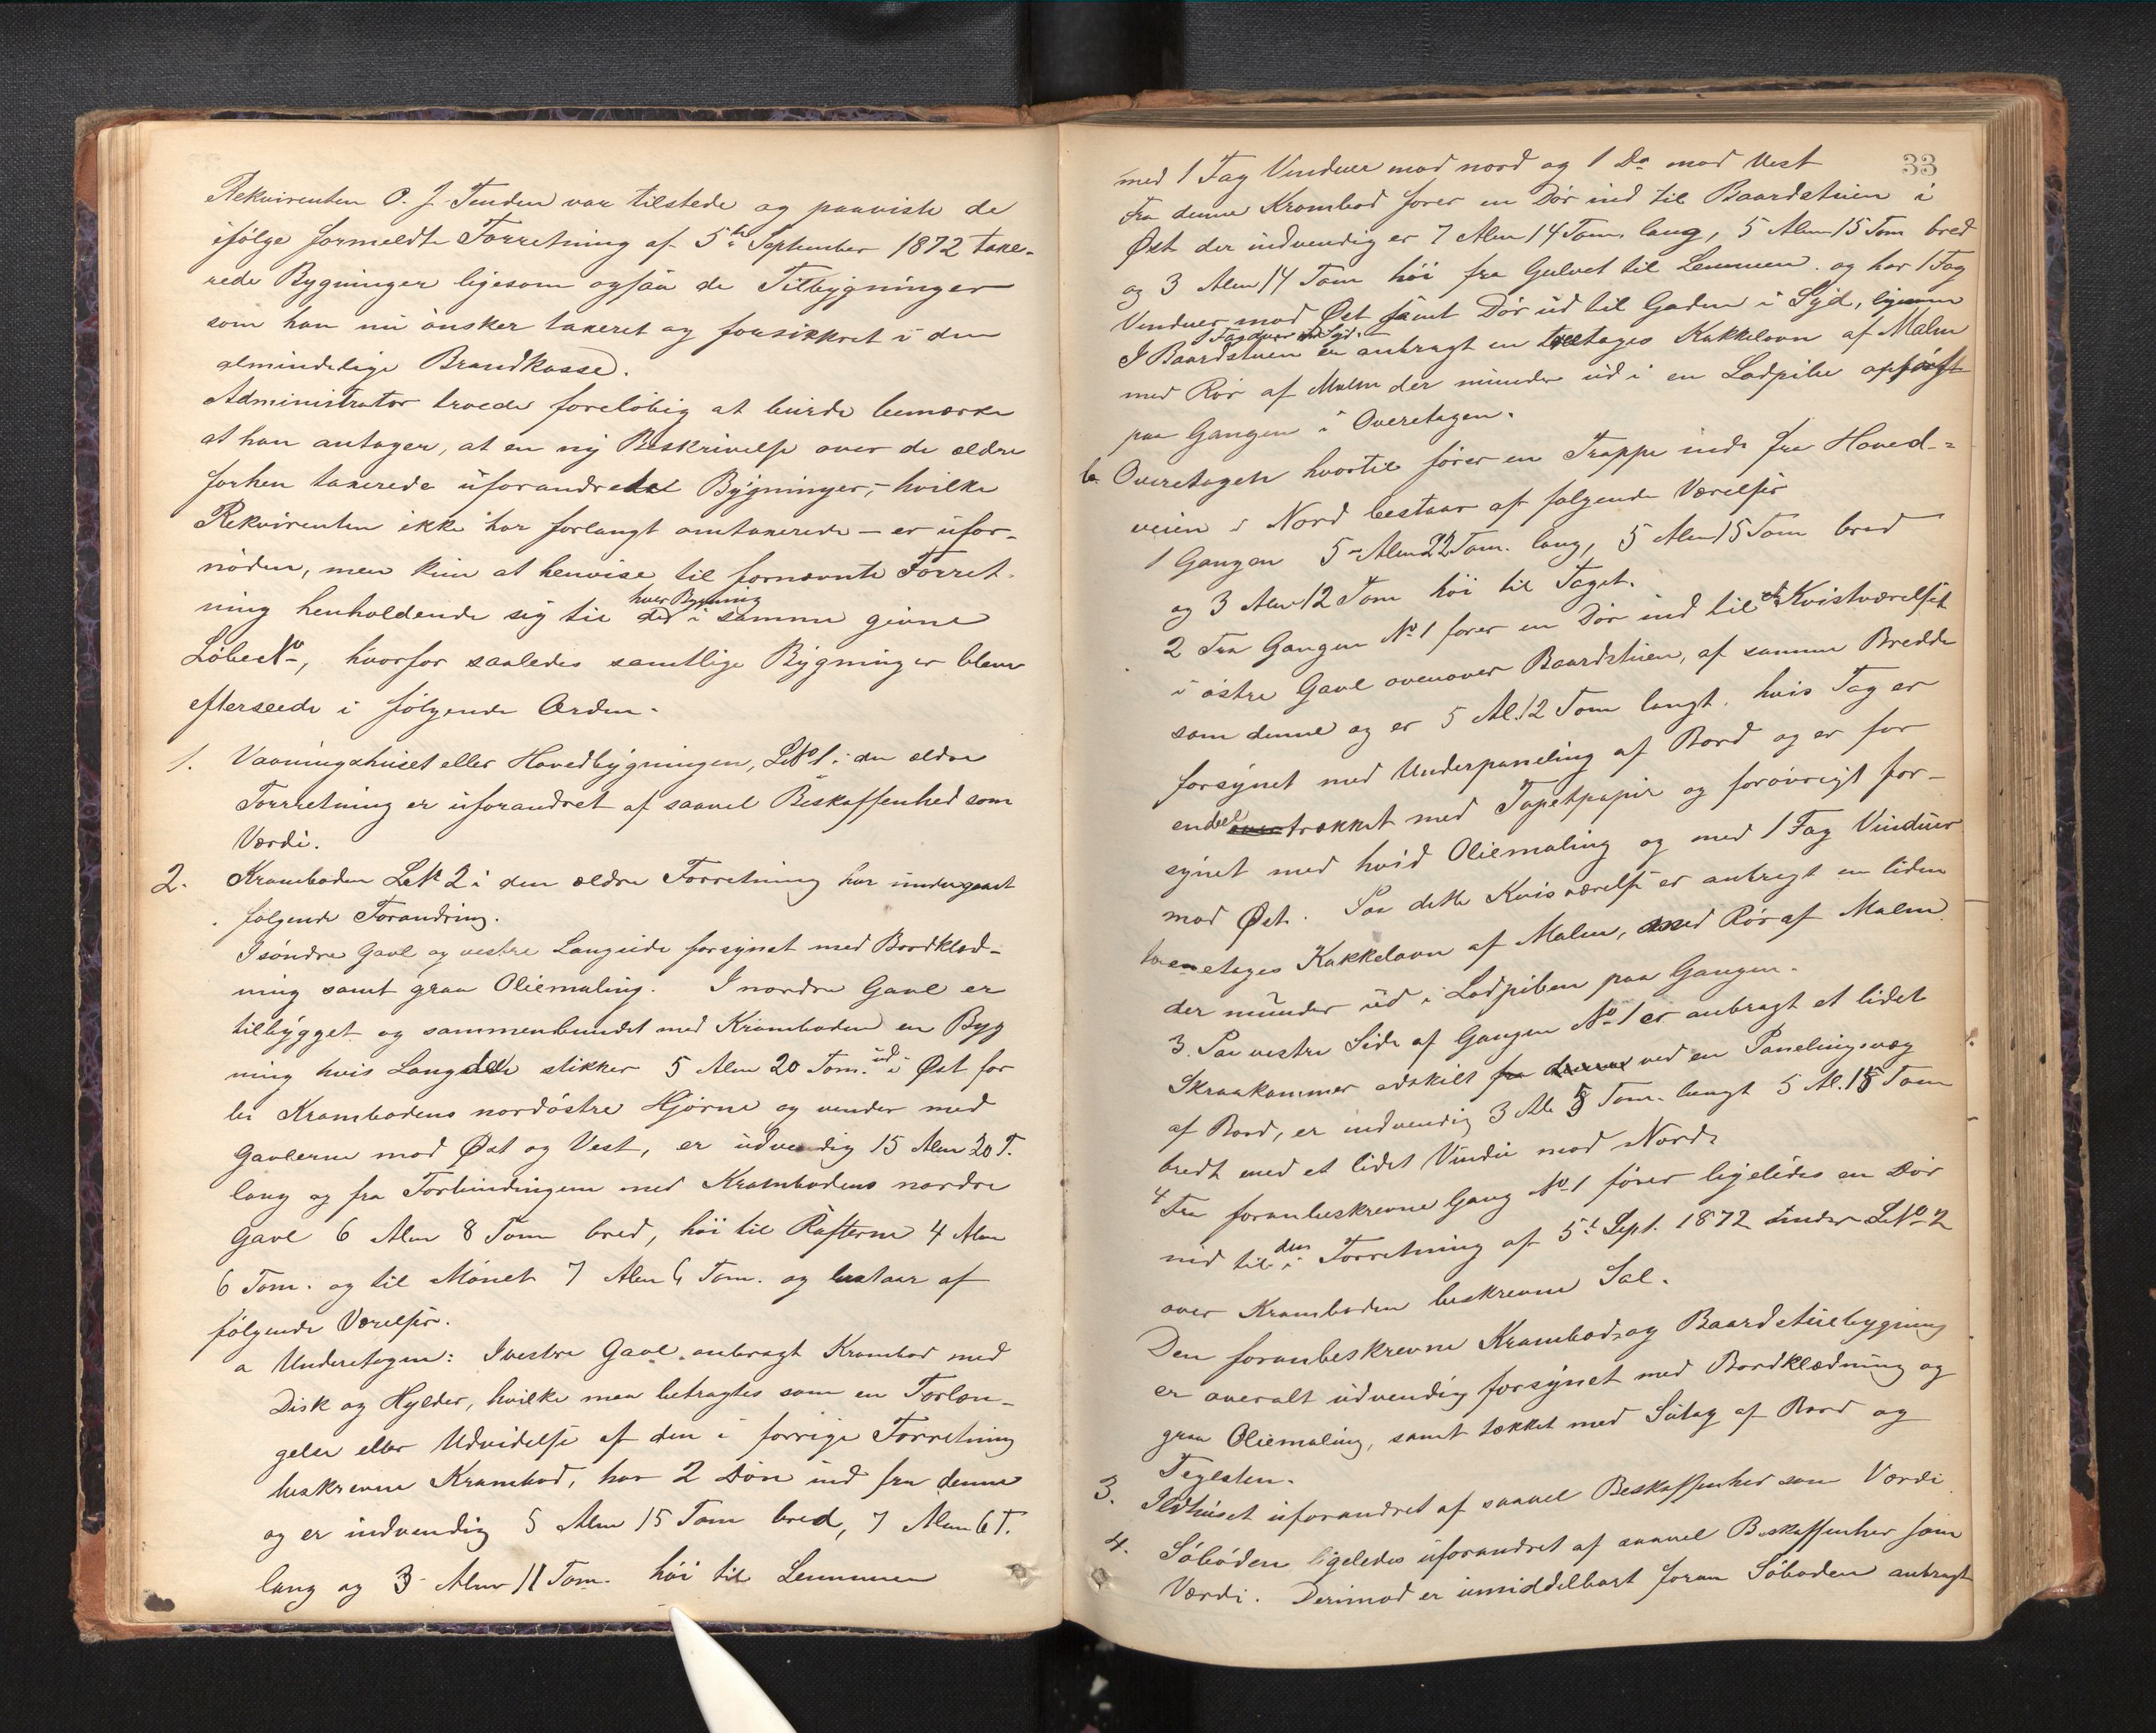 Rekvirenten O. J. Tenden var tilstede og paaviste de
ifølge formeldte Forretning af 5te September 1872 taxe-
rede Bygninger ligesom ogsaa de Tilbygninger
som han nu ønsker taxeret og forsikkret i den
almindelige Brandkasse.
Administrator troede foreløbig at burde bemærke
at han antager, at en ny Beskrivelse over de ældre
forhen taxerede uforandrede Bygninger, – hvilke
Rekvirenten ikke har forlangt omtaxerede – er ufor-
nøden, men kun at henvise til fornævnte Forret-
ning henholdende sig til det hver Bygning i samme givne
LøbeNo, hvorfor saaledes samtlige Bygninger blev
efterseede i følgende Orden.
1. Vaaningshuset eller Hovedbygningen, LNo 1 i den ældre
Forretning er uforandret af saavel Beskaffenhed som
Værdi.
2. Kramboden LNo 2 i den ældre Forretning har undergaaet
følgende Forandring.
I søndre Gavl og vestre Langside forsynet med Bordklæd-
ning samt graa Oliemaling. I nordre Gavl er
tilbygget og sammenbundet med Kramboden en Byg
ning hvis Længde stikker 5 Alen 20 Tom. ud i Øst for
bi Krambodens nordøstre Hjørne og vender med
Gavlerne mod Øst og Vest, er udvendig 15 Alen 20 T.
lang og fra Forbindingen med Krambodens nordre
Gavl 6 Alen 8 Tom bred, høi til Rafterne 4 Alen
6 Tom. og til Mønet 7 Alen 6 Tom. og bestaar af
følgende Værelser.
a Underetagen: I vestre Gavl anbragt Krambod med
Disk og Hylder, hvilke maa betragtes som en Forlæn-
gelse eller Udvidelse af den i forrige Forretning
beskrevne Krambod, har 2 Døre ind fra denne
og er indvendig 5 Alen 15 Tom bred, 7 Alen 6 T.
lang og 3 Alen 11 Tom. høi til Lemmen
33
med 1 Fag Vinduer mod nord og 1 Do mod Vest
Fra denne Krambod fører en Dør ind til Baardstuen i
Øst der indvendig er 7 Alen 14 Tom. lang, 5 Alen 15 Tom bred
og 3 Alen 14 Tom høi fra Gulvet til Lemmen. og har 1 Fag
Vinduer mod Øst samt Dør ud til Gaden i Syd, ligesom
1 Fag mod Syd.
I Baardstuen er anbragt en toetages Kakkelovn af Malm
med Rør af Malm der munder ud i en Ladpibe opført
paa Gangen i Overetagen.
b. Overetagen hvortil fører en Trappe inde fra Hoved-
veien i Nord bestaar af følgende Værelser
1 Gangen 5 Alen 22 Tom. lang, 5 Alen 15 Tom bred
og 3 Alen 12 Tom høi til Taget.
2 Fra Gangen No 1 fører en Dør ind til et Kvistværelset
i østre Gavl ovenover Baardstuen, af samme Bredde
som denne og er 5 Al. 12 Tom langt. hvis Tag er
forsynet med Underpaneling af Bord og er for
endeel trækket med Tapetpapir og forøvrigt for-
synet med hvid Oliemaling og med 1 Fag Vinduer
mod Øst. Paa dette Kvisværelse er anbragt en liden
toetages Kakkelovn af Malm, med Rør af Malm
der munder ud i Ladpiben paa Gangen.
3. Paa vestre Side af Gangen No 1 er anbragt et lidet
Skraakammer adskilt fra denne ved en Panelingsvæg
af Bord, er indvendig 3 Al. 5 Tom. langt 5 Al. 15 Tom
bredt med et lidet Vindu mod Nord.
4 Fra foranbeskrevne Gang No 1 fører ligeledes en Dør
ind til den i Forretning af 5t Sept. 1872 under LNo 2
over Kramboden beskrevne Sal.
Den foranbeskrevne Krambod og Baardstuebygning
er overalt udvendig forsynet med Bordklædning og
graa Oliemaling, samt tækket med Sutag af Bord og
Teglsten.
3. Ildhuset uforandret af saavel Beskaffenhed som Værdi
4. Søboden ligeledes uforandret af saavel Beskaffenhed som
Værdi. Derimod er umiddelbart foran Søboden anbragt